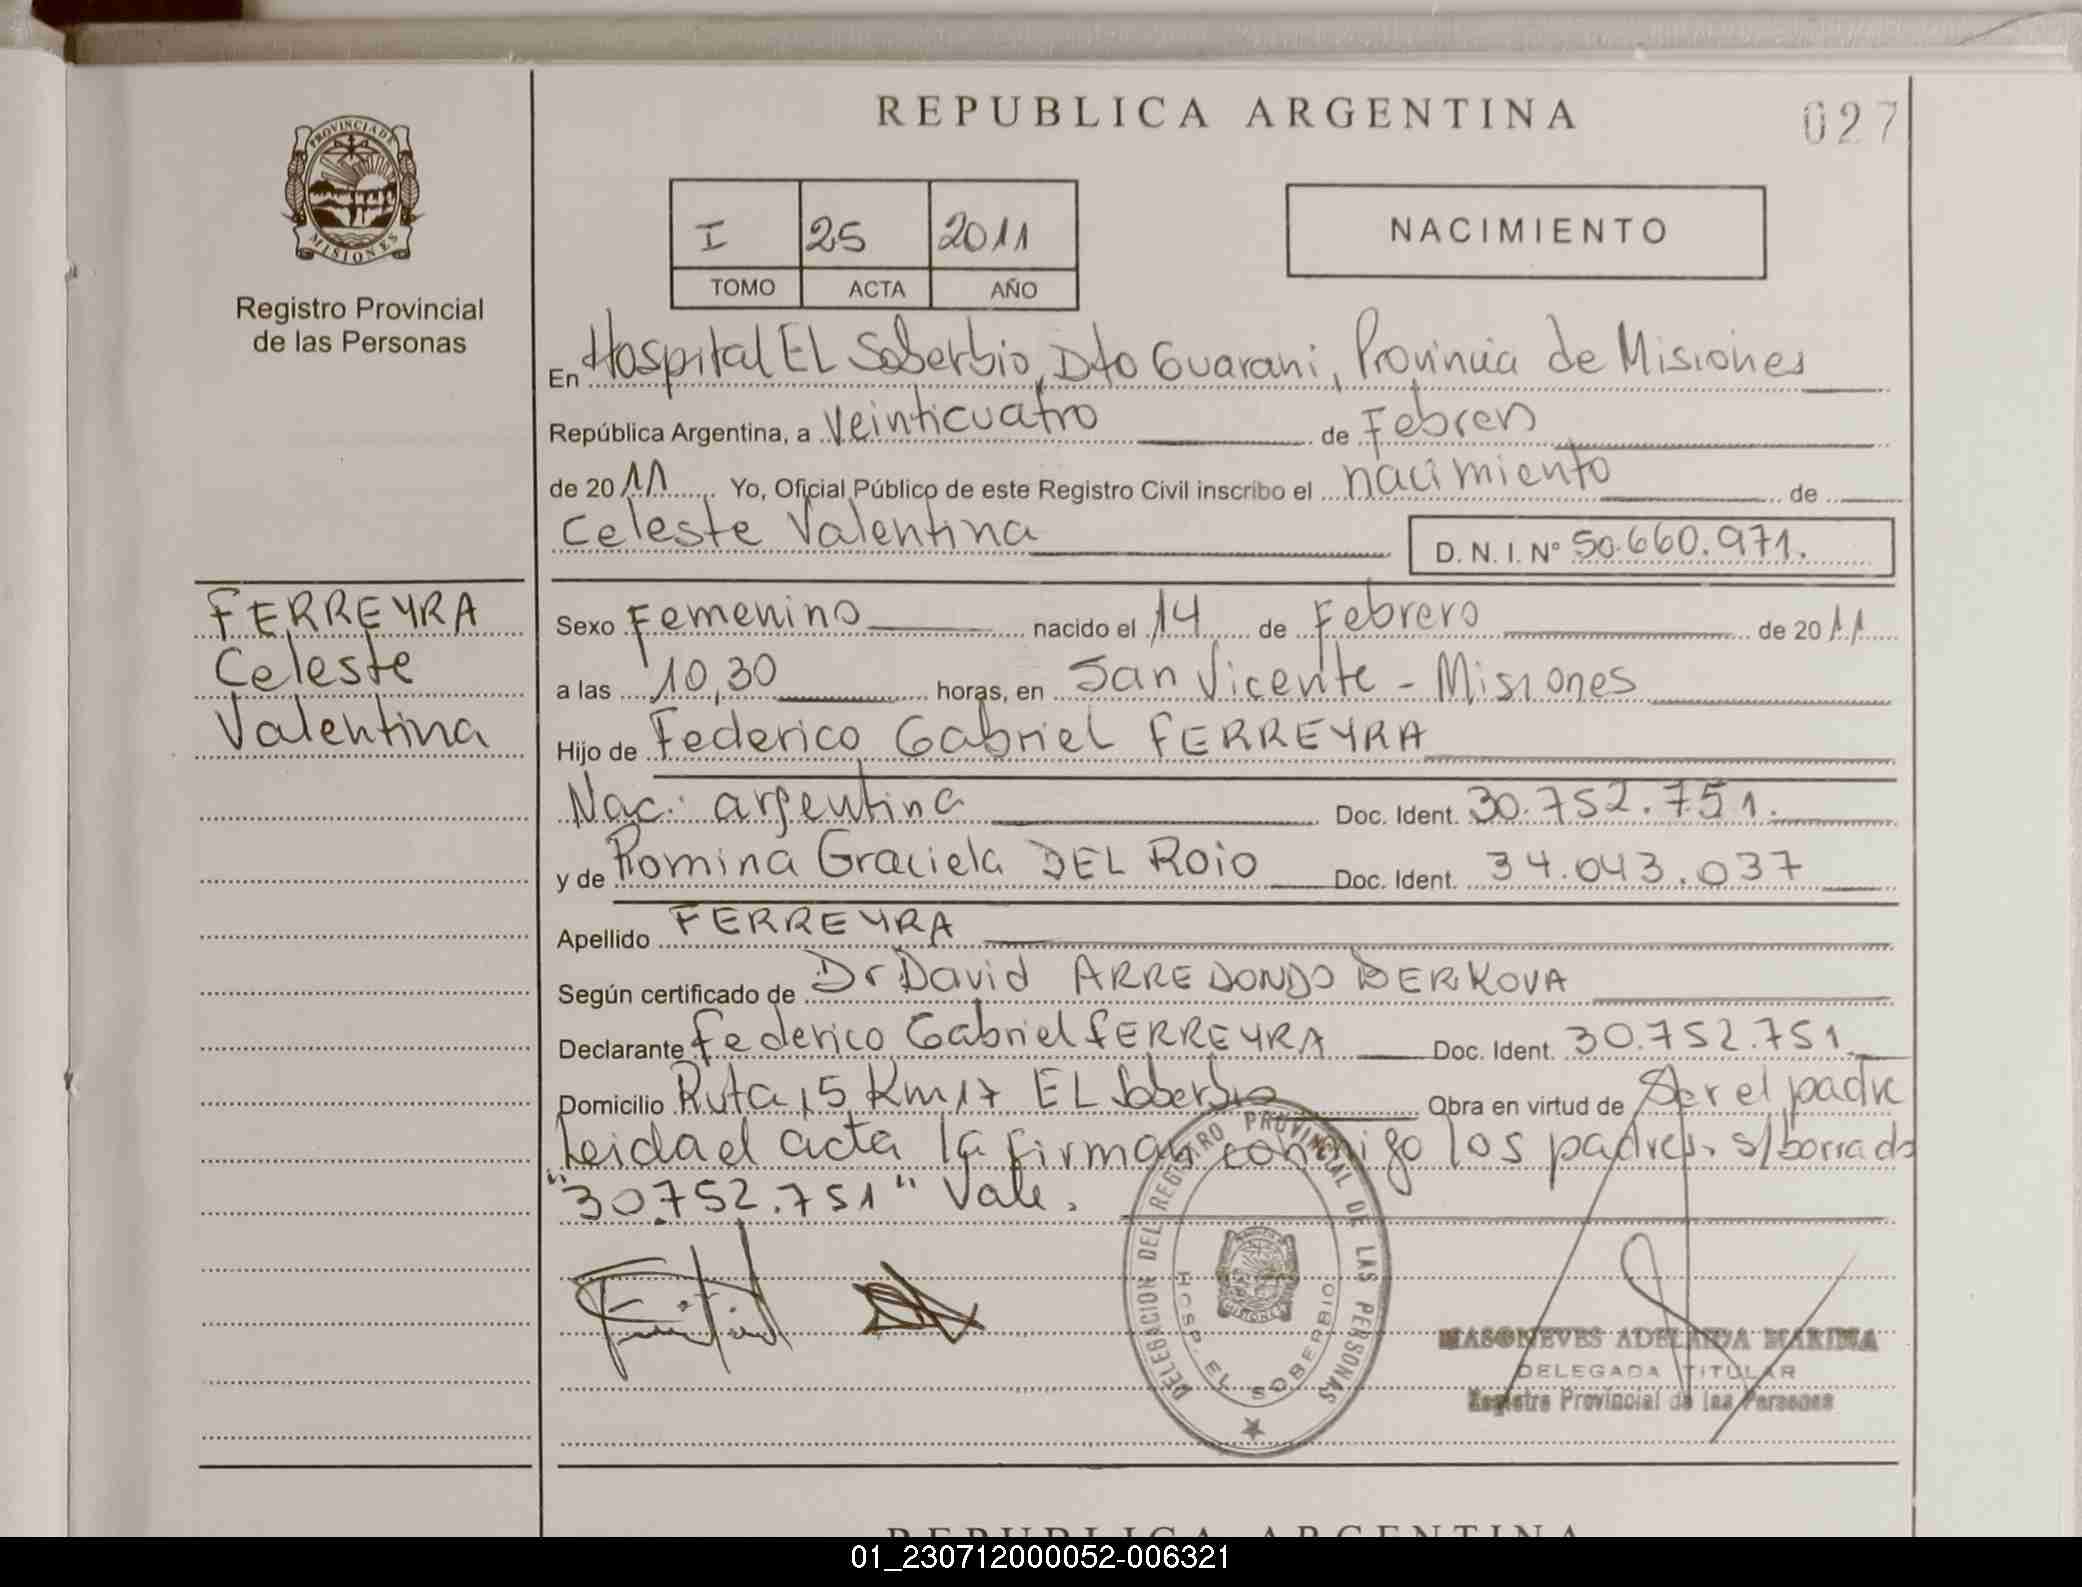 REPUBLICA ARGENTINA
027
PROVINCIA DE
MISIONES
Registro Provincial
de las Personas
I 25 2011
TOMO ACTA AÑO
NACIMIENTO
En Hospital EL Soberbio, Dto Guarani, Provincia de Misiones
República Argentina, a veinticuatro de Febrero
de 2011 Yo, Oficial Público de este Registro Civil inscribo el nacimiento de
Celeste Valentina D. N. I. Nº 50.660.971.
FERREYRA
Celeste
Valentina
Sexo Femenino nacido el 14 de Febrero de 2011
a las 10,30 horas, en San Vicente - Misiones
Hijo de Federico Gabriel FERREYRA
Nac: argentina Doc. Ident. 30.752.751.
y de Romina Graciela DEL ROIO Doc. Ident. 34.043.037
Apellido FERREYRA
Según certificado de Dr David ARREDONDO BERKOVA
Declarante Federico Gabriel FERREYRA Doc. Ident. 30.752.751.
Domicilio Ruta 15 Km 17 EL Soberbio Obra en virtud de Ser el padre
Leida el acta la firman conmigo los padres. s/borrado
"30.752.751" Vale.
DELEGACION DEL REGISTRO PROVINCIAL DE LAS PERSONAS
HOSP. EL SOBERBIO
MISIONES
MASONEVES ADELAIDA MARINA
DELEGADA TITULAR
Registro Provincial de las Personas
REPUBLICA ARGENTINA
01_230712000052-006321